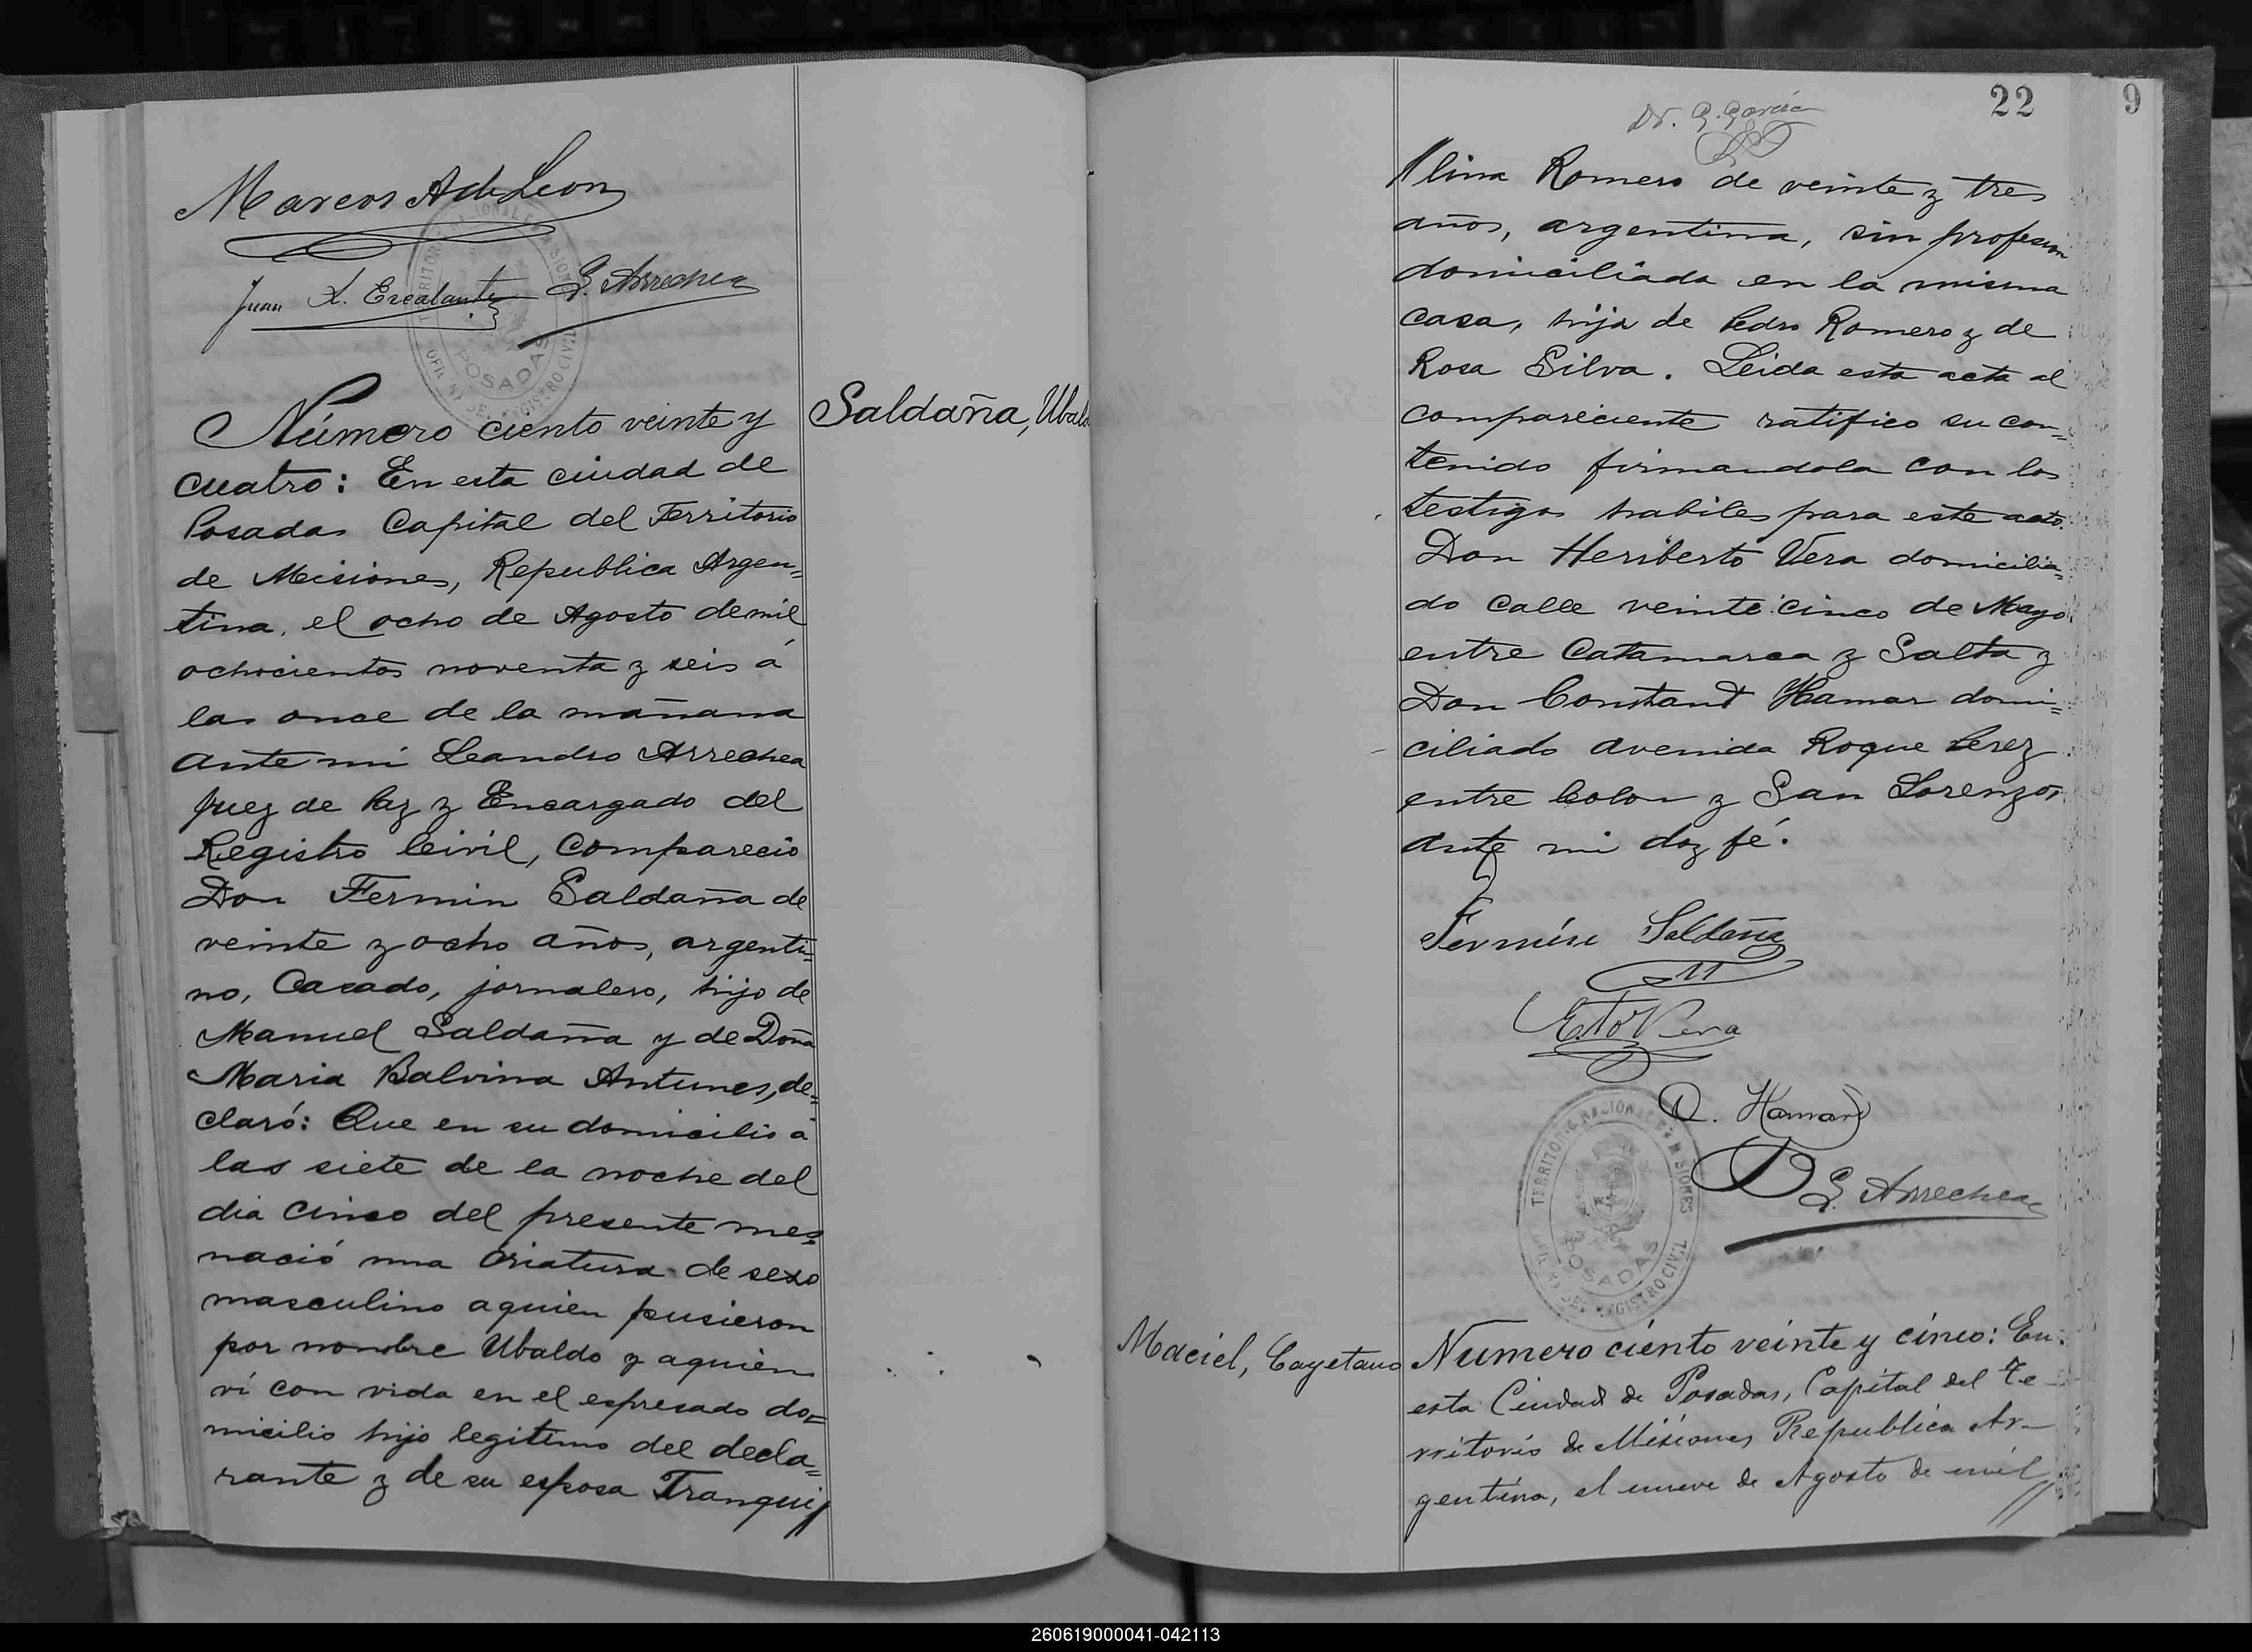 Marcos A de Leon
Juan L. Escalante L. Arrechea
TERRITORIO NACIONAL DE MISIONES
POSADAS
REGISTRO CIVIL
Número ciento veinte y
Saldaña, Ubaldo
cuatro: En esta ciudad de
Posadas Capital del Territorio
de Misiones, Republica Argen=
tina, el ocho de Agosto de mil
ochocientos noventa y seis á
las once de la mañana
ante mi Leandro Arrechea
Juez de Paz y Encargado del
Registro Civil, Comparecio
Don Fermin Saldaña de
veinte y ocho años, argenti=
no, Casado, jornalero, hijo de
Manuel Saldaña y de Doña
Maria Balvina Antunes, de=
claró: Que en su domicilio á
las siete de la noche del
dia cinco del presente mes
nació una criatura de sexo
masculino aquien pusieron
por nombre Ubaldo y aquien
ví con vida en el espresado do=
micilio hijo legitimo del decla=
rante y de su esposa Tranqui//
22
9
Dr. G. Garcia
//lina Romero de veinte y tres
años, argentina, sin profesion
domiciliada en la misma
casa, hija de Pedro Romero y de
Rosa Silva. Leida esta acta al
compareciente ratifico su con=
tenido firmandola con los
testigos habiles para este acto.
Don Heriberto Vera domicilia=
do calle veinte cinco de Mayo
entre Catamarca y Salta y
Don Constant Hamar domi=
ciliado avenida Roque Perez
entre Colon y San Lorenzo,
ante mi doy fé.
Fermín Saldaña
Eto Vera
C. Hamar
L. Arrechea
TERRITORIO NACIONAL DE MISIONES
POSADAS
REGISTRO CIVIL
Maciel, Cayetano
Numero ciento veinte y cinco: En
esta Ciudad de Posadas, Capital del Te-
rritorio de Misiones Republica Ar-
gentina, el nueve de Agosto de mil//
260619000041-042113